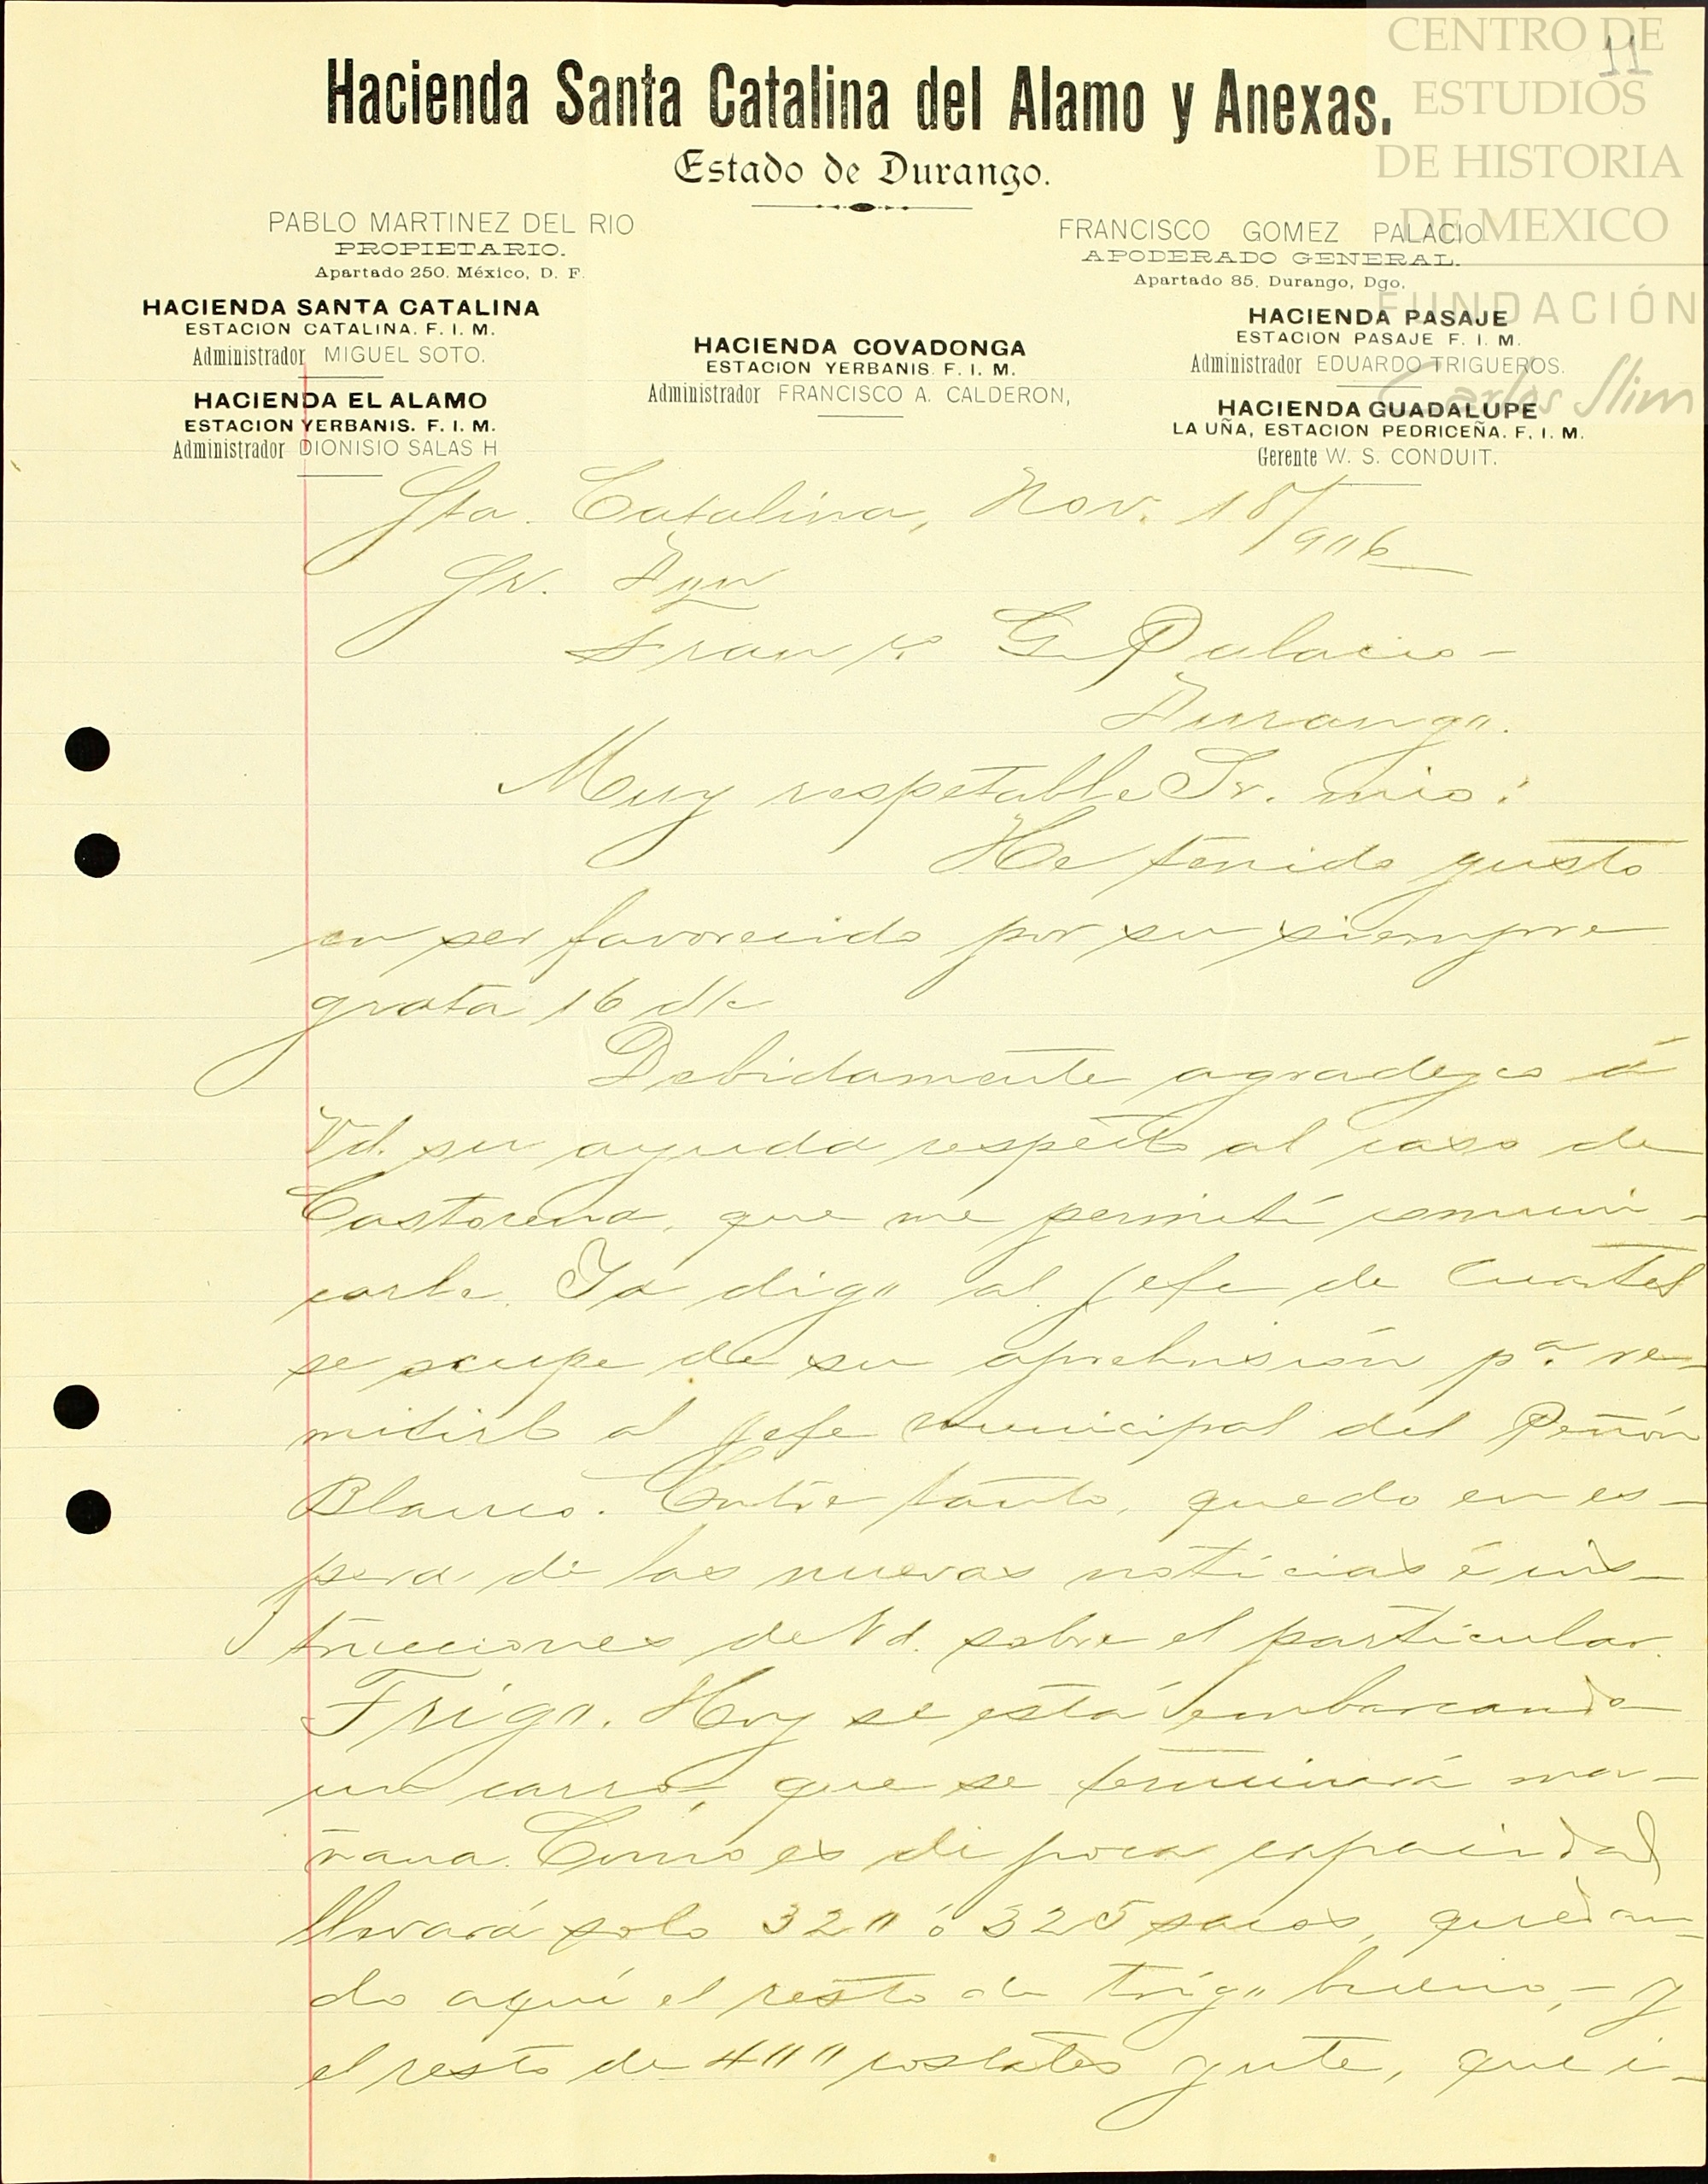 11
CENTRO DE
ESTUDIOS
DE HISTORIA
DE MEXICO
FUNDACIÓN
Carlos Slim
Hacienda Santa Catalina del Alamo y Anexas.
Estado de Durango.
PABLO MARTINEZ DEL RIO
PROPIETARIO.
Apartado 250. México, D. F.
FRANCISCO GOMEZ PALACIO
APODERADO GENERAL.
Apartado 85, Durango, Dgo.
HACIENDA SANTA CATALINA
ESTACION CATALINA. F. I. M.
Administrador MIGUEL SOTO.
HACIENDA EL ALAMO
ESTACION YERBANIS. F. I. M.
Administrador DIONISIO SALAS H
HACIENDA COVADONGA
ESTACION YERBANIS. F. I. M.
Administrador FRANCISCO A. CALDERON,
HACIENDA PASAJE
ESTACION PASAJE F. I. M.
Administrador EDUARDO TRIGUEROS.
HACIENDA GUADALUPE
LA UÑA, ESTACION PEDRICEÑA. F. I. M.
Gerente W. S. CONDUIT.
Sta. Catalina, Nov. 18/906
Sr. Dn
Franco. G. Palacio-
Durango.
Muy respetable Sr. mio:
He tenido gusto
en ser favorecido por su siempre
grata 16 d/c
Debidamente agradezco á
Vd. su ayuda respecto al caso de
Castorena, que me permití comuni-
carle. Ya digo al Jefe de Cuartel
se ocupe de su aprehensión pa. re-
mitirlo al Jefe municipal del Peñón
Blanco. Entre tanto, quedo en es-
pera de las nuevas noticias é ins-
trucciones de Vd. sobre el particular.
Trigo. Hoy se está embarcando
un carro, que se terminará ma-
ñana. Como es de poca capacidad
llevará solo 320 ó 325 sacos, quedan-
do aquí el resto de trigo bueno,- y
el resto de 400 costales yute, que i-